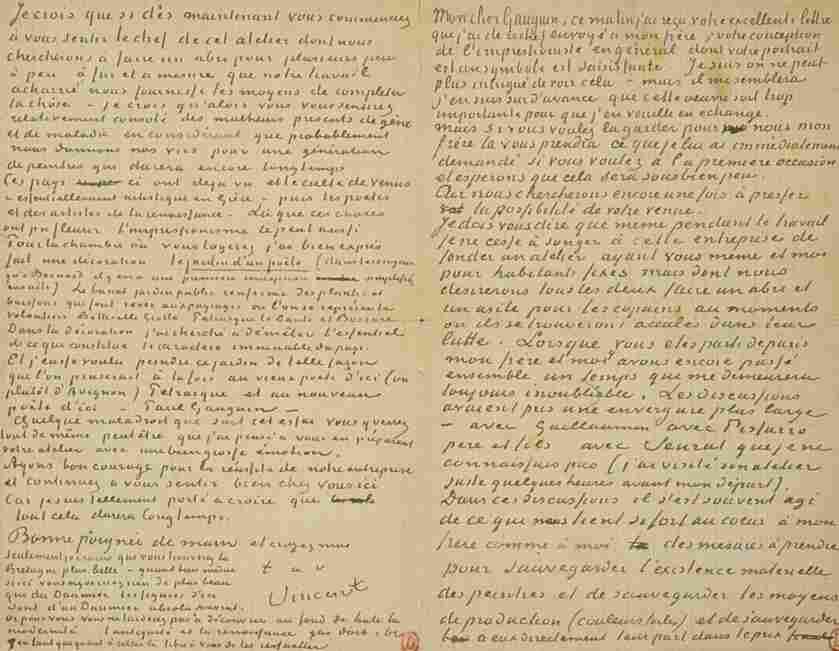 Je crois que si dès maintenant vous commenciez
à vous sentir le chef de cet atelier dont nous
chercherons à faire un abri pour plusieurs peu
à peu à fur et à mesure que notre travail
acharné nous fournisse les moyens de completer
la chose – je crois qu'alors vous vous sentirez
relativement consolé des malheurs presents de gêne
et de maladie en considerant que probablement
nous donnons nos vies pour une génération
de peintres qui durera encore longtemps.
Ces pays ci ont déjà vu et le culte de Venus
– essentiellement artistique en Grèce – puis les poetes
et des artistes de la renaissance. – Là où ces choses
ont pu fleurir l'impressionisme le peut aussi.
Pour la chambre où vous logerez j'ai bien exprès
fait une décoration le jardin d'un poète (dans les croquis
qu'a Bernard il y en a une première conception simplifiée
ensuite) Le banal jardin public renferme des plantes et
buissons qui font rever aux paysages où l'on se représente
volontiers Botticelli Giotto Petrarque le Dante et Boccace.
Dans la décoration j'ai cherché à démêler l'essentiel
de ce qui constitue le caractère immuable du pays.
Et j'eusse voulu peindre ce jardin de telle façon
que l'on penserait à la fois au vieux poète d'ici (ou
plutôt d'Avignon) Petrarque et au nouveau
poète d'ici – Paul Gauguin –
Quelque maladroit que soit cet essai vous y verrez
tout de même peut être que j'ai pensé à vous en préparant
votre atelier avec une bien grosse émotion.
Ayons bon courage pour la reussite de notre entreprise
et continuez à vous sentir bien chez vous ici
Car je suis tellement porté à croire que
tout cela durera longtemps.
Bonne poignée de main et croyez moi
t. à v.
Vincent
seulement je crains que vous trouviez la
Bretagne plus belle – quand bien même
si ici vous ne voyez rien de plus beau
que du Daumier les figures d'ici
sont d'un Daumier absolu souvent.
or pour vous vous ne tarderez pas à découvrir au fond de toute la
modernité l'antiquité et la renaissance qui dort. –
quant à elles libre à vous de les reveiller
Mon cher Gauguin, ce matin j'ai reçu votre excellente lettre
que j'ai derechef envoyé à mon frère; votre conception
de l'impressioniste en general dont votre portrait
est un symbole est saisissante. Je suis on ne peut
plus intrigué de voir cela – mais il me semblera
j'en suis sûr d'avance que cette oeuvre soit trop
importante pour que j'en veuille en échange.
Mais si vous voulez la garder pour nous mon
frère la vous prendra ce que je lui ai immédiatement
demandé si vous voulez à la première occasion
et esperons que cela sera sous bien peu.
Car nous chercherons encore une fois à presser
la possibilité de votre venue.
Je dois vous dire que meme pendant le travail
je ne cesse à songer à cette entreprise de
fonder un atelier ayant vous même et moi
pour habitants fixes mais dont nous
desirerions tous les deux faire un abri et
un asile pour les copains aux moments
où ils se trouveront acculés dans leur
lutte. Lorsque vous etes parti de Paris
mon frère et moi y avons encore passé
ensemble un temps qui me demeurera
toujours inoubliable. Les discussions
avaient pris une envergure plus large
– avec Guillaumin avec Pissarro
père et fils avec Seurat que je ne
connaissais pas (j'ai visité son atelier
juste quelques heures avant mon départ).
Dans ces discussions il s'est souvent agi
de ce qui nous tient si fort au coeur à mon
frère comme à moi des mesures à prendre
pour sauvegarder l'existence materielle
des peintres et de sauvegarder les moyens
de production (couleurs toiles) et de sauvegarder
à eux directement leur part dans le prix